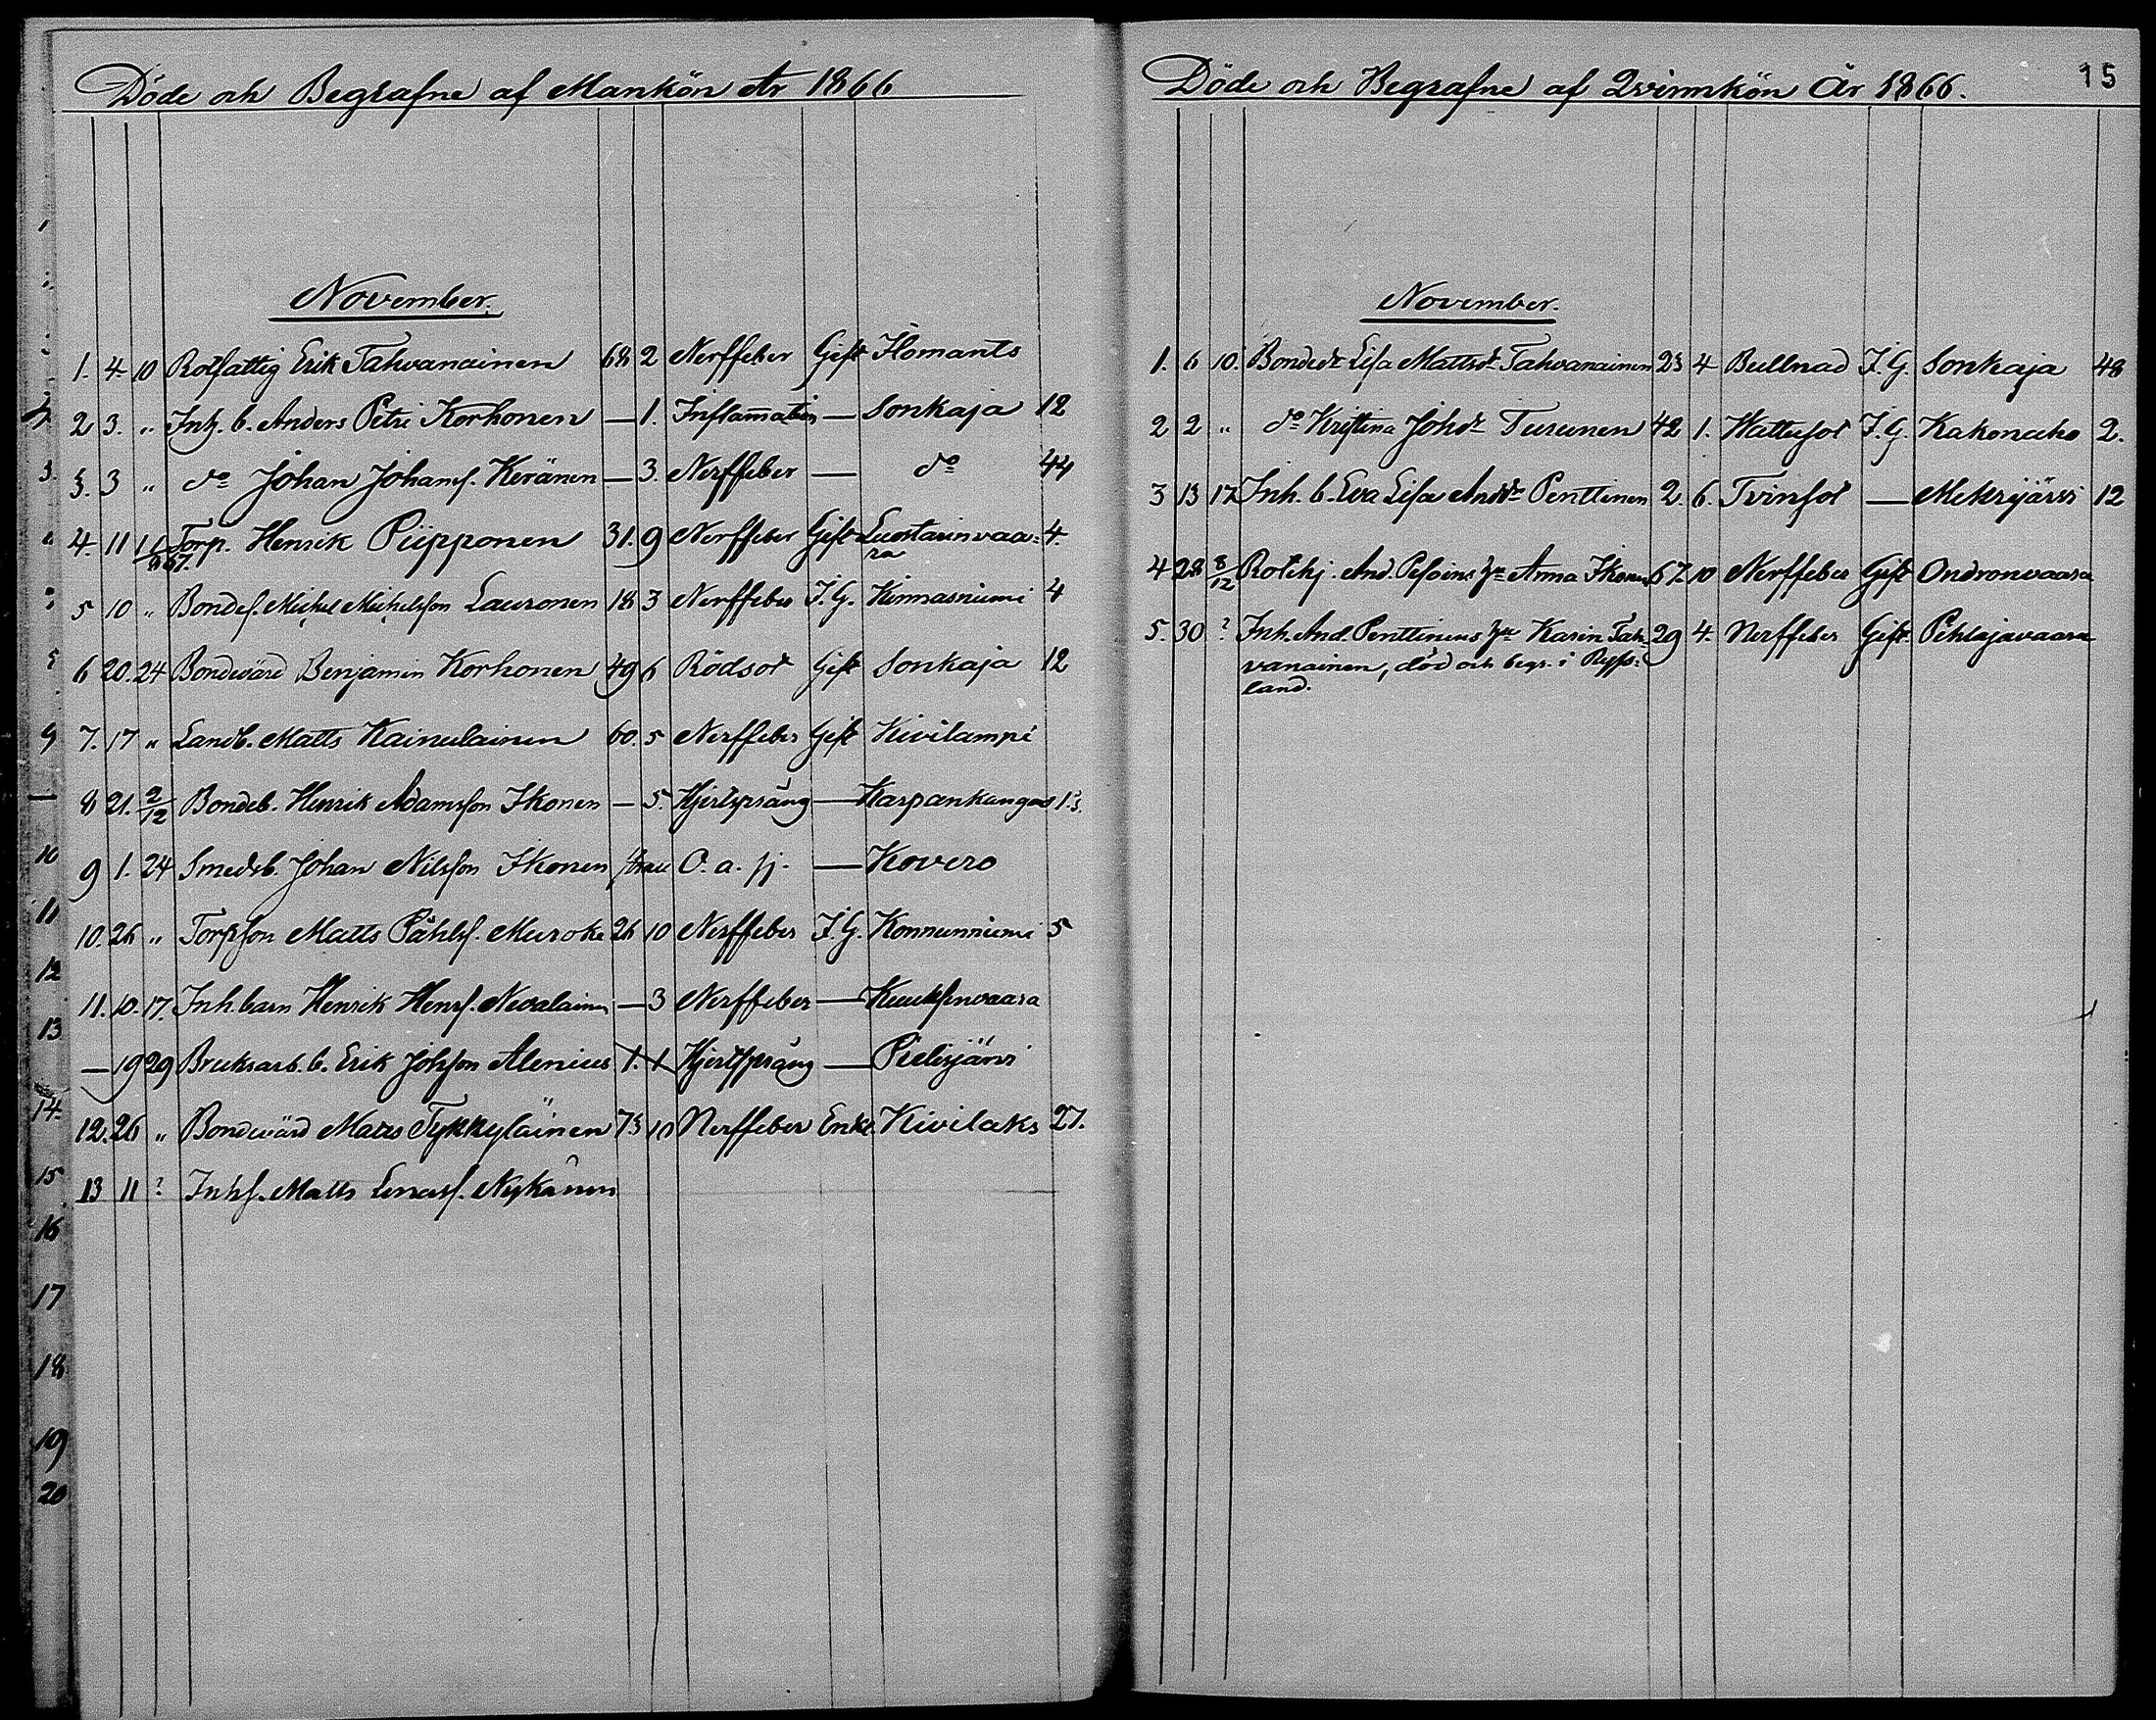 Döde och Begrafne af Mankön År 1866
November.
1. 4. 10 Rotfattig Erik Tahvanainen 68 2 Nerffeber Gift Ilomants
2 3. " Inh. b. Anders Petri Korhonen — 1. Inflammation — Sonkaja 12
3. 3 " do Johan Johans. Keränen — 3. Nerffeber — do 44
4. 11 Torp. Henrik Piipponen 31. 9 Nerffeber Gift Luostarinvaa= 4.
ra
5 10 " Bondes. Michel Michelsson Lauronen 18 3 Nerffeber J. G. Kinnasniemi 4
6 20. 24 Bondevärd Benjamin Korhonen 49 6 Rödsot Gift Sonkaja 12
7. 17 " Landb. Matts Kainulainen 60. 5 Nerffeber Gift Kivilampi
8 21. 2/12 Bondeb. Henrik Adamsson Ikonen — 5. Hjertsprång — Karpankangas 13.
9 1. 24 Smedsb. Johan Nilsson Ikonen O. a. sj. — Kovero
10. 26 " Torpson Matts Påhls. Muroke 26 10 Nerffeber J. G. Konnunniemi 5
11. 10. 17. Inh. barn Henrik Henrs. Nevalainen — 3 Nerffeber — Kuuksenvaara
— 19 29 Bruksarb. b. Erik Johsson Alenius 1. 1 Hjertsprång — Pielisjärvi
12. 26 " Bondevärd Matts Tykkyläinen 73 10 Nerffeber Enkl. Kivilaks 27.
13 11 ? Inhs. Matts Nykänen
9
10
11
12
13
14.
15
16
17
18
19
20
Döde och Begrafne af Qvinnkön År 1866.
15
November.
1. 6 10. Bonded. Lisa Mattsd. Tahvanainen 23 4 Bullnad J. G. Sonkaja 48
2 2 " do Kristina Johd. Turunen 42 1. Vattusot J. G. Kakonaho 2.
3 13 17 Inh. b. Eva Lisa Andd. Penttinen 2. 6. Tvinsot — Mekrijärvi 12
4 28 8/12 Rotehj. And. Pesoins hu Anna Ikonen 67. 10 Nerffeber Gift Ondronvaara
5. 30 ? Inh. And. Penttinens hu Karin Tah= 29 4. Nerffeber Gift. Pehlajavaara
vanainen, död och begr. i Ryss=
land.